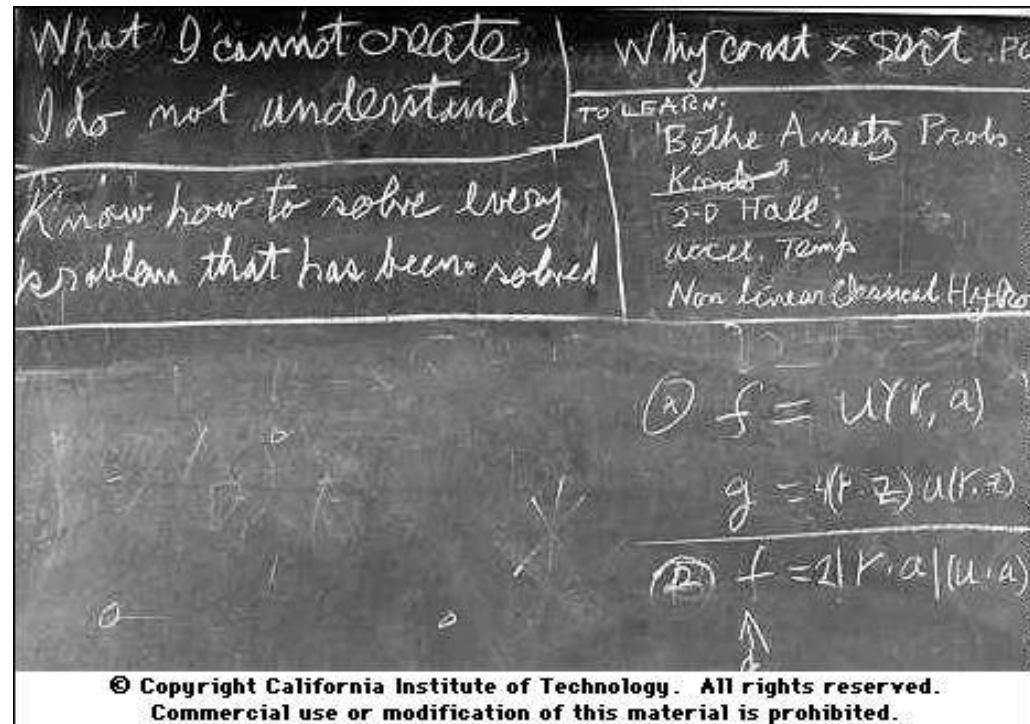 What I cannot create,
I do not understand.
Know how to solve every
problem that has been solved
Why const × sort . Po
TO LEARN:
Bethe Ansatz Probs.
Kondo
2-D Hall
accel. Temp
Non linear Classical Hydro
f = u(r, a)
g = 4(r·z) u(r·z)
f = 2|r·a|(u·a)
© Copyright California Institute of Technology. All rights reserved.
Commercial use or modification of this material is prohibited.